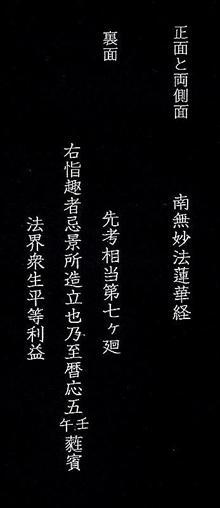 正面と両側面
南無妙法蓮華経
裏面
先考相当第七ヶ廻
右恉趣者忌景所造立也乃至暦応五壬午蕤賓
法界衆生平等利益